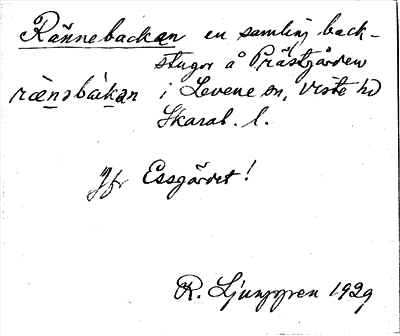 Rännebackan en samling back-
stugor å Prästgården
rænəbakan i Levene sn, Viste hd
Skarab. l.
Jfr Essgärdet!
R. Ljunggren 1929